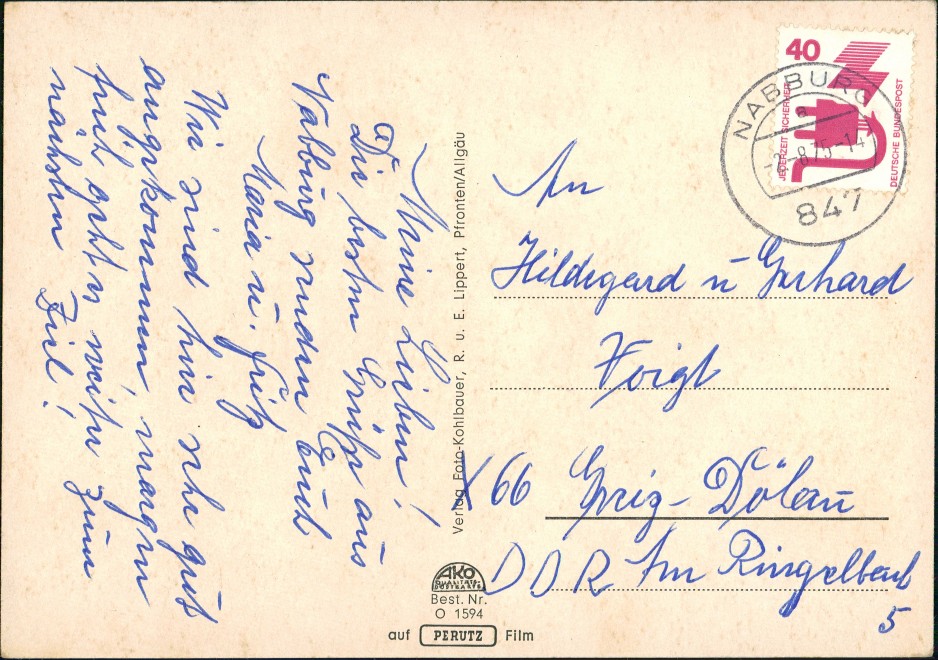 Meine Lieben!
Die besten Grüße aus
Nabburg senden Euch
Maria u. Fritz
Wir sind hier sehr gut
angekommen, morgen
früh geht es weiter zum
nächsten Ziel!
Verlag Foto-Kohlbauer, R. u. E. Lippert, Pfronten/Allgäu
AKO
QUALITÄTS-
POSTKARTE
Best. Nr.
O 1594
auf PERUTZ Film
40
JEDERZEIT SICHERHEIT
DEUTSCHE BUNDESPOST
NABBURG
a
-8.75-14
847
An
Hildegard u Gerhard
Voigt
X 66 Greiz-Dölau
DDR Am Ringelbach
5